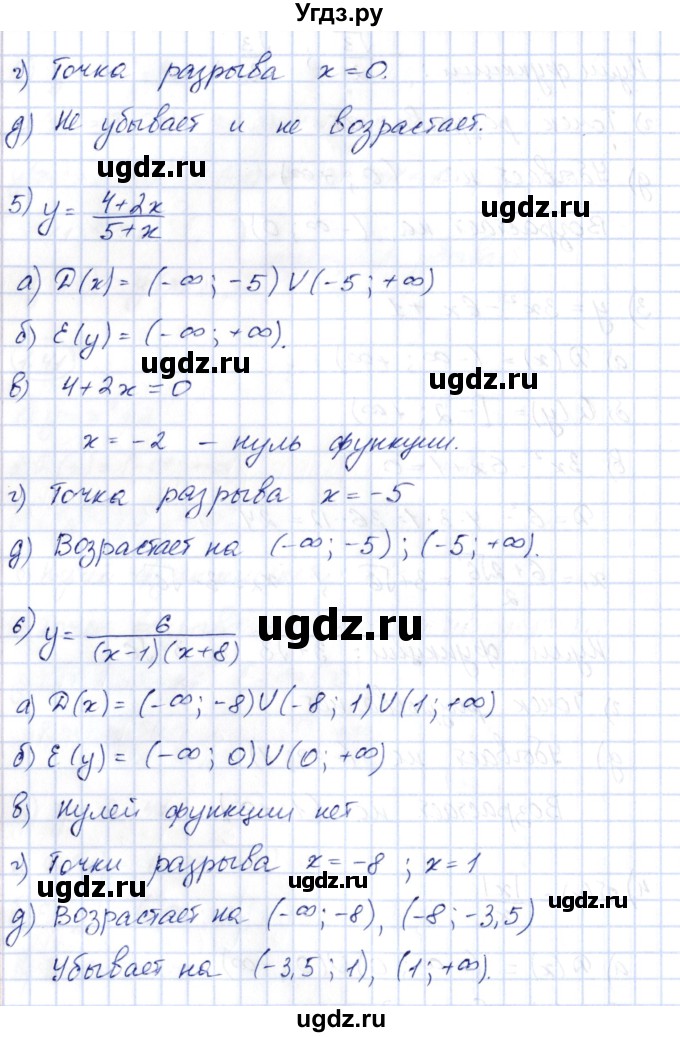 Угдз.ру
г) Точка разрыва x=0.
д) Не убывает и не возрастает.
ugdz.ru
ugdz.ru
5) y= (4+2x)/(5+x)
а) D(x)= (-∞; -5) U (-5; +∞)
б) E(y)= (-∞; +∞).
ugdz.ru
ugdz.ru
в) 4+2x=0
x=-2 – нуль функции.
г) Точка разрыва x=-5
ugdz.ru
д) Возрастает на (-∞; -5); (-5; +∞).
6) y= 6/((x-1)(x+8))
ugdz.ru
ugdz.ru
а) D(x)= (-∞; -8) U (-8; 1) U (1; +∞)
б) E(y)= (-∞; 0) U (0; +∞)
ugdz.ru
в) Нулей функции нет
г) Точки разрыва x=-8; x=1
ugdz.ru
ugdz.ru
ugdz.ru
д) Возрастает на (-∞; -8), (-8; -3,5)
Убывает на (-3,5; 1), (1; +∞).
ugdz.ru